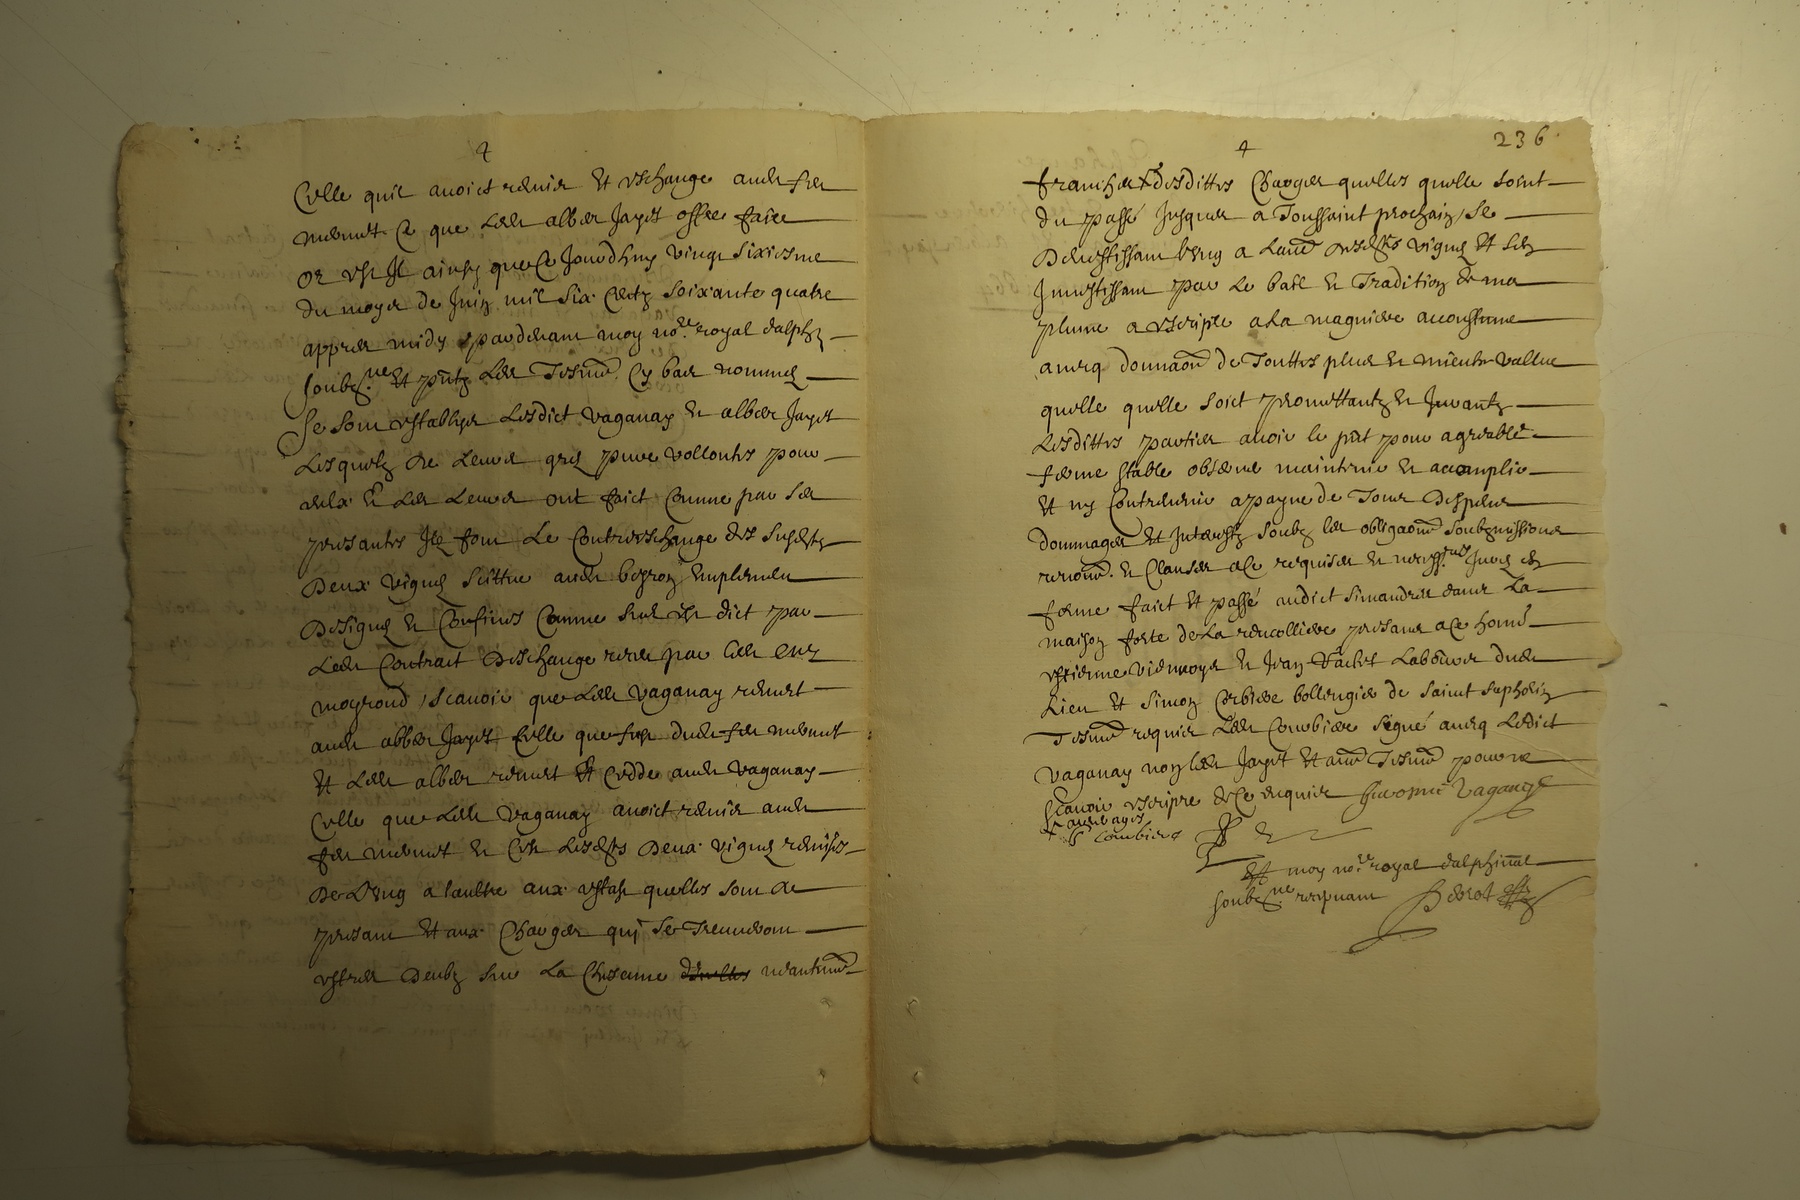 4
Celle quil avoict remise Et eschange audit fer
mennet Ce que Ledit alber Jayet offre faire
or est Il ainsy que Ce Jourdhuy vingt sixiesme
du moys de Juin mil six Centz soixante quatre
appres midy pardevant moy no.re royal dalph.
soubz.ne Et pntz Les Tesmo. Cy bas nommes
Se sont establys Lesdict vaganay Et alber Jayet
Lesquelz de Leurs gres pure vollontes pour
eulx Et Les Leurs ont faict Comme par Ses
presantes Ilz font Le Contreschange des susdtz
Deux vignes scittue audit
Designes Et Confines Comme sus est dict par
Ledit Contract Deschange receu par
moyroud, scavoir que Ledit vaganay remet
audit alber Jayet Celle que fust dudit fer mennet
Et Ledit alber remet Et Cedde audit vaganay
Celle que Ledit vaganay avoict remise audit
fer mennet Et Cest Lesdtes Deux vignes remises
De Lung a laultre aux estast quelles sont de
presant Et aux Charges qui se Treuveront
estres Deubz sur La Chescune neantmo.
4
236
franches desdittes Charges quelles quelle soint
du passé Jusques a Toussaint prochain, Se
Devestissant Lung a Lautre desdtes vignes Et sen
Investissant par Le bail Et Tradition de ma
plume a escripre a la magniere accoustume
avecq donnaon de Touttes plus Et mieux vallue
quelle quelle soict promettantz Et Jurantz
Lesdittes parties avoir le pnt pour agreable
ferme stable observe maintenir Et accomplir
Et ny Contrevenir a payne de Tous Despens
Dommages Et Interestz soubz les obligaons soubzmissions
renon. Et Clauses a Ce requises Et necess.res Jures en
forme faict Et passé audict simandres dans La
maison forte de La presans a Ce hon.
estienne Et Jean Laboureur dudit
Lieu Et simon Corbiere bollengier de saint saphorin
Tesmo. requis Ledit Courbiere signé avecq Ledict
vaganay non ledit Jayet Et aut. Tesmo. pour ne
scavoir escripre de Ce enquis vaganay
S Combiere
Et moy no.re royal dalphinal
soubz.ne recepvant